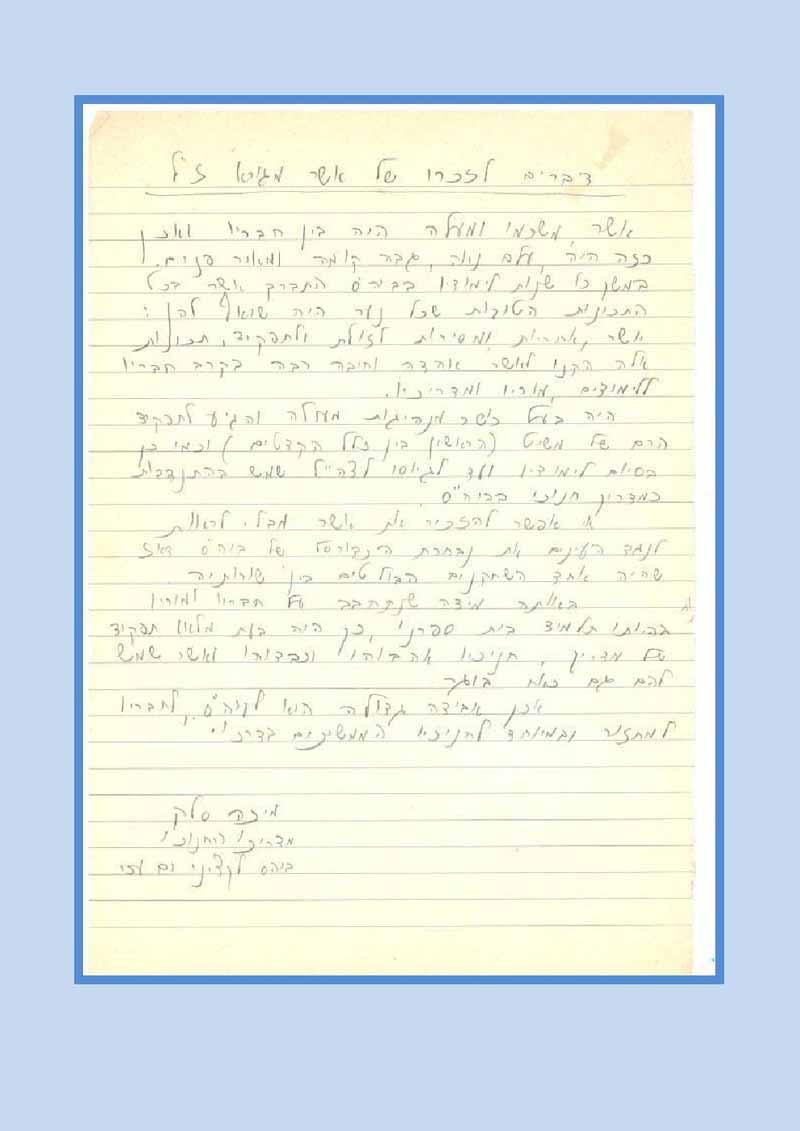 דברים לזכרו של אשר מגורא ז"ל
אשר, משכמו ומעלה היה בין חבריו ואכן
כזה היה, עלם נאה, גבה קומה ומאור פנים.
במשך כל שנות לימודיו בביה"ס התברך אשר בכל
התכונות הטובות שכל נער היה שואף להן:
אשר, אחריות ומסירות לזולת ולתפקיד, תכונות
אלה הקנו לאשר אהדה וחיבה רבה בקרב חבריו
ללימודים, מוריו ומדריכיו.
היה בעל כשר מנהיגות מעולה והגיע לתפקיד
הרם של משיט (הראשון בין כלל הקדטים) וכמו כן
בסיום לימודיו ועד לגיוסו לצה"ל שמש בהתנדבות
כמדריך חנוכי בביה"ס.
אי אפשר להזכיר את אשר מבלי לראות
לנגד העינים את נבחרת הכדורסל של ביה"ס דאז
שהיה אחד השחקנים הבולטים בין שורותיה.
באותה מידה שנתחבב על חבריו ומוריו
בהיותו תלמיד בית ספרנו, כך היה בעת מלאו תפקיד
של מדריך, חניכיו אהבוהו וכבדוהו ואשר שמש
להם גם כאח בוגר
אכן אבידה גדולה הוא לביה"ס, לחבריו
למחזור ובמיוחד לחניכיו הממשיכים בדרכו.
מדריכו החנוכי
ביהס לקציני ים עכו